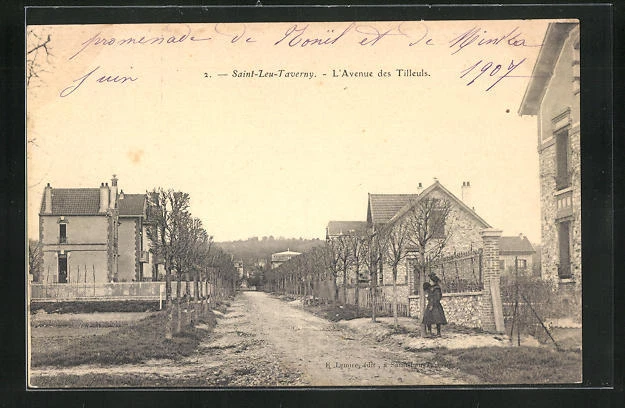 promenade de Noël et de Minka
Juin 1907
2. — Saint-Leu-Taverny. - L'Avenue des Tilleuls.
édit., à